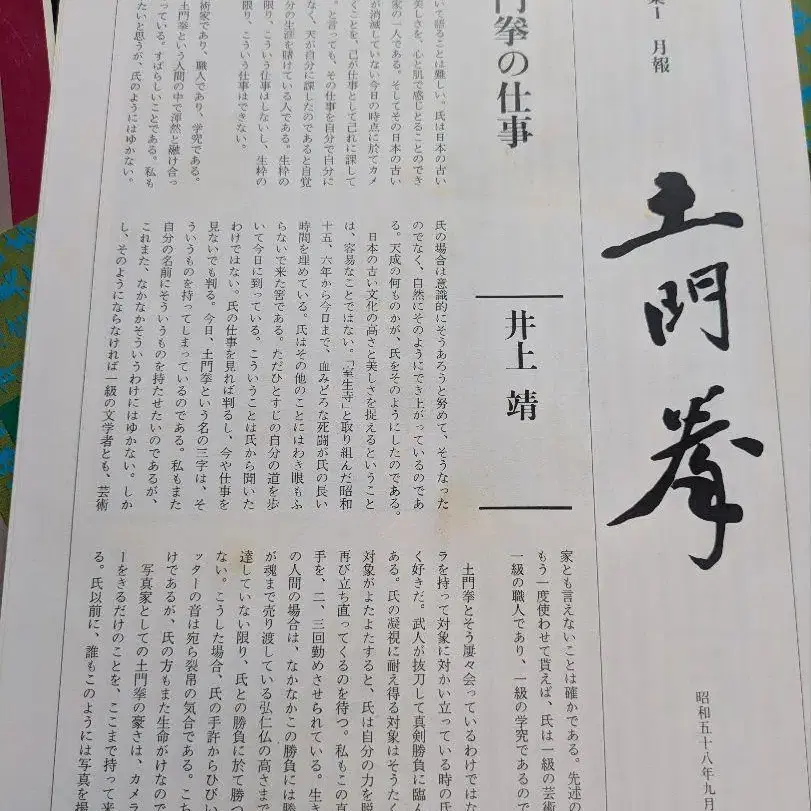 集1 月報
土門拳
昭和五十八年九月
門拳の仕事
井上 靖
いて語ることは難しい。氏は日本の古い
美しさを、心と肌で感じとることのでき
家の一人である。そしてその日本の古い
が消滅していない今日の時点に於てカメ
くことを、己が仕事として己れに課して
。と言っても、その仕事を自分で自分に
なく、天が自分に課したのであると自覚
分の生涯を賭けている人である。生粋の
限り、こういう仕事はしないし、生粋の
限り、こういう仕事はできない。
術家であり、職人であり、学究である。
土門拳という人間の中で渾然と融け合っ
っている。すばらしいことである。私も
たいと思うが、氏のようにはゆかない。
氏の場合は意識的にそうあろうと努めて、そうなった
のでなく、自然にそのようにでき上がっているのであ
る。天成の何ものかが、氏をそのようにしたのである。
日本の古い文化の高さと美しさを捉えるということ
は、容易なことではない。「室生寺」と取り組んだ昭和
十五、六年から今日まで、血みどろな死闘が氏の長い
時間を埋めている。氏はその他のことにはわき眼もふ
らないで来た筈である。ただひとすじの自分の道を歩
いて今日に到っている。こういうことは氏から聞いた
わけではない。氏の仕事を見れば判るし、今や仕事を
見ないでも判る。今日、土門拳という名の三字は、そ
ういうものを持ってしまっているのである。私もまた
自分の名前にそういうものを持たせたいのであるが、
これまた、なかなかそういうわけにはゆかない。しか
し、そのようにならなければ一級の文学者とも、芸術
家とも言えないことは確かである。先述の
もう一度使わせて貰えば、氏は一級の芸術
一級の職人であり、一級の学究であるので
土門拳とそう屡々会っているわけではな
ラを持って対象に対かい立っている時の氏
く好きだ。武人が抜刀して真剣勝負に臨ん
ある。氏の凝視に耐え得る対象はそうたく
対象がよたよたすると、氏は自分の力を脱
再び立ち直ってくるのを待つ。私もこの真
手を、二、三回勤めさせられている。生き
の人間の場合は、なかなかこの勝負には勝
が魂まで売り渡している弘仁仏の高さまで
達していない限り、氏との勝負に於て勝つ
ない。こうした場合、氏の手許からひびい
ッターの音は宛ら裂帛の気合である。こち
けであるが、氏の方もまた生命がけなので
写真家としての土門拳の豪さは、カメラ
ーをきるだけのことを、ここまで持って来
る。氏以前に、誰もこのようには写真を撮